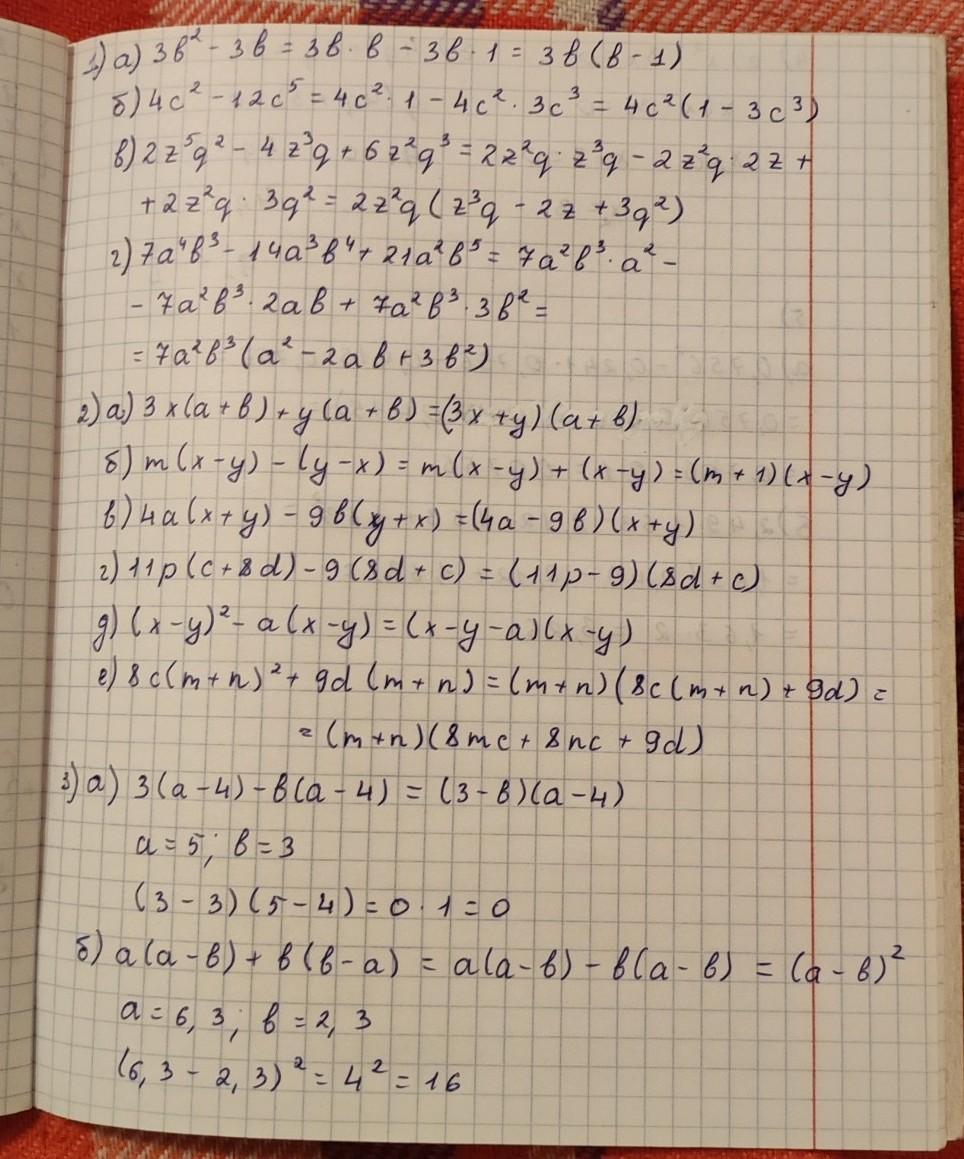 1) а) 3в² - 3в = 3в · в - 3в · 1 = 3в (в - 1)
б) 4с² - 12с⁵ = 4с² · 1 - 4с² · 3с³ = 4с² (1 - 3с³)
в) 2z⁵q² - 4z³q + 6z²q³ = 2z²q · z³q - 2z²q · 2z +
+ 2z²q · 3q² = 2z²q (z³q - 2z + 3q²)
г) 7а⁴в³ - 14а³в⁴ + 21а²в⁵ = 7а²в³ · а² -
- 7а²в³ · 2ав + 7а²в³ · 3в² =
= 7а²в³ (а² - 2ав + 3в²)
2) а) 3x(а + в) + y(а + в) = (3x + y) (а + в)
б) m(x - y) - (y - x) = m(x - y) + (x - y) = (m + 1) (x - y)
в) 4а(x + y) - 9в(y + x) = (4а - 9в) (x + y)
г) 11p(с + 8d) - 9(8d + с) = (11p - 9) (8d + с)
д) (x - y)² - а(x - y) = (x - y - а) (x - y)
е) 8с(m + n)² + 9d (m + n) = (m + n) (8с(m + n) + 9d) =
= (m + n) (8mс + 8nс + 9d)
3) а) 3(а - 4) - в(а - 4) = (3 - в) (а - 4)
а = 5; в = 3
(3 - 3) (5 - 4) = 0 · 1 = 0
б) а(а - в) + в(в - а) = а(а - в) - в(а - в) = (а - в)²
а = 6,3; в = 2,3
(6,3 - 2,3)² = 4² = 16